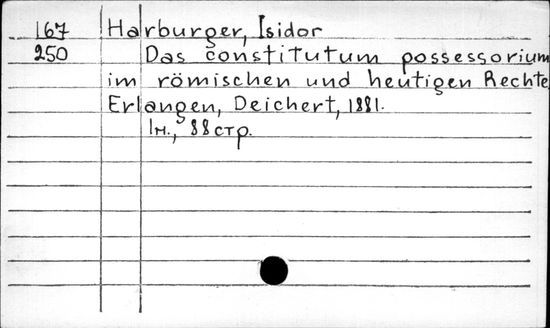 167 Harburger, Isidor
250 Das constitutum possessorium
im römischen und heutigen Rechte
Erlangen, Deichert, 1881.
1н., 88 стр.